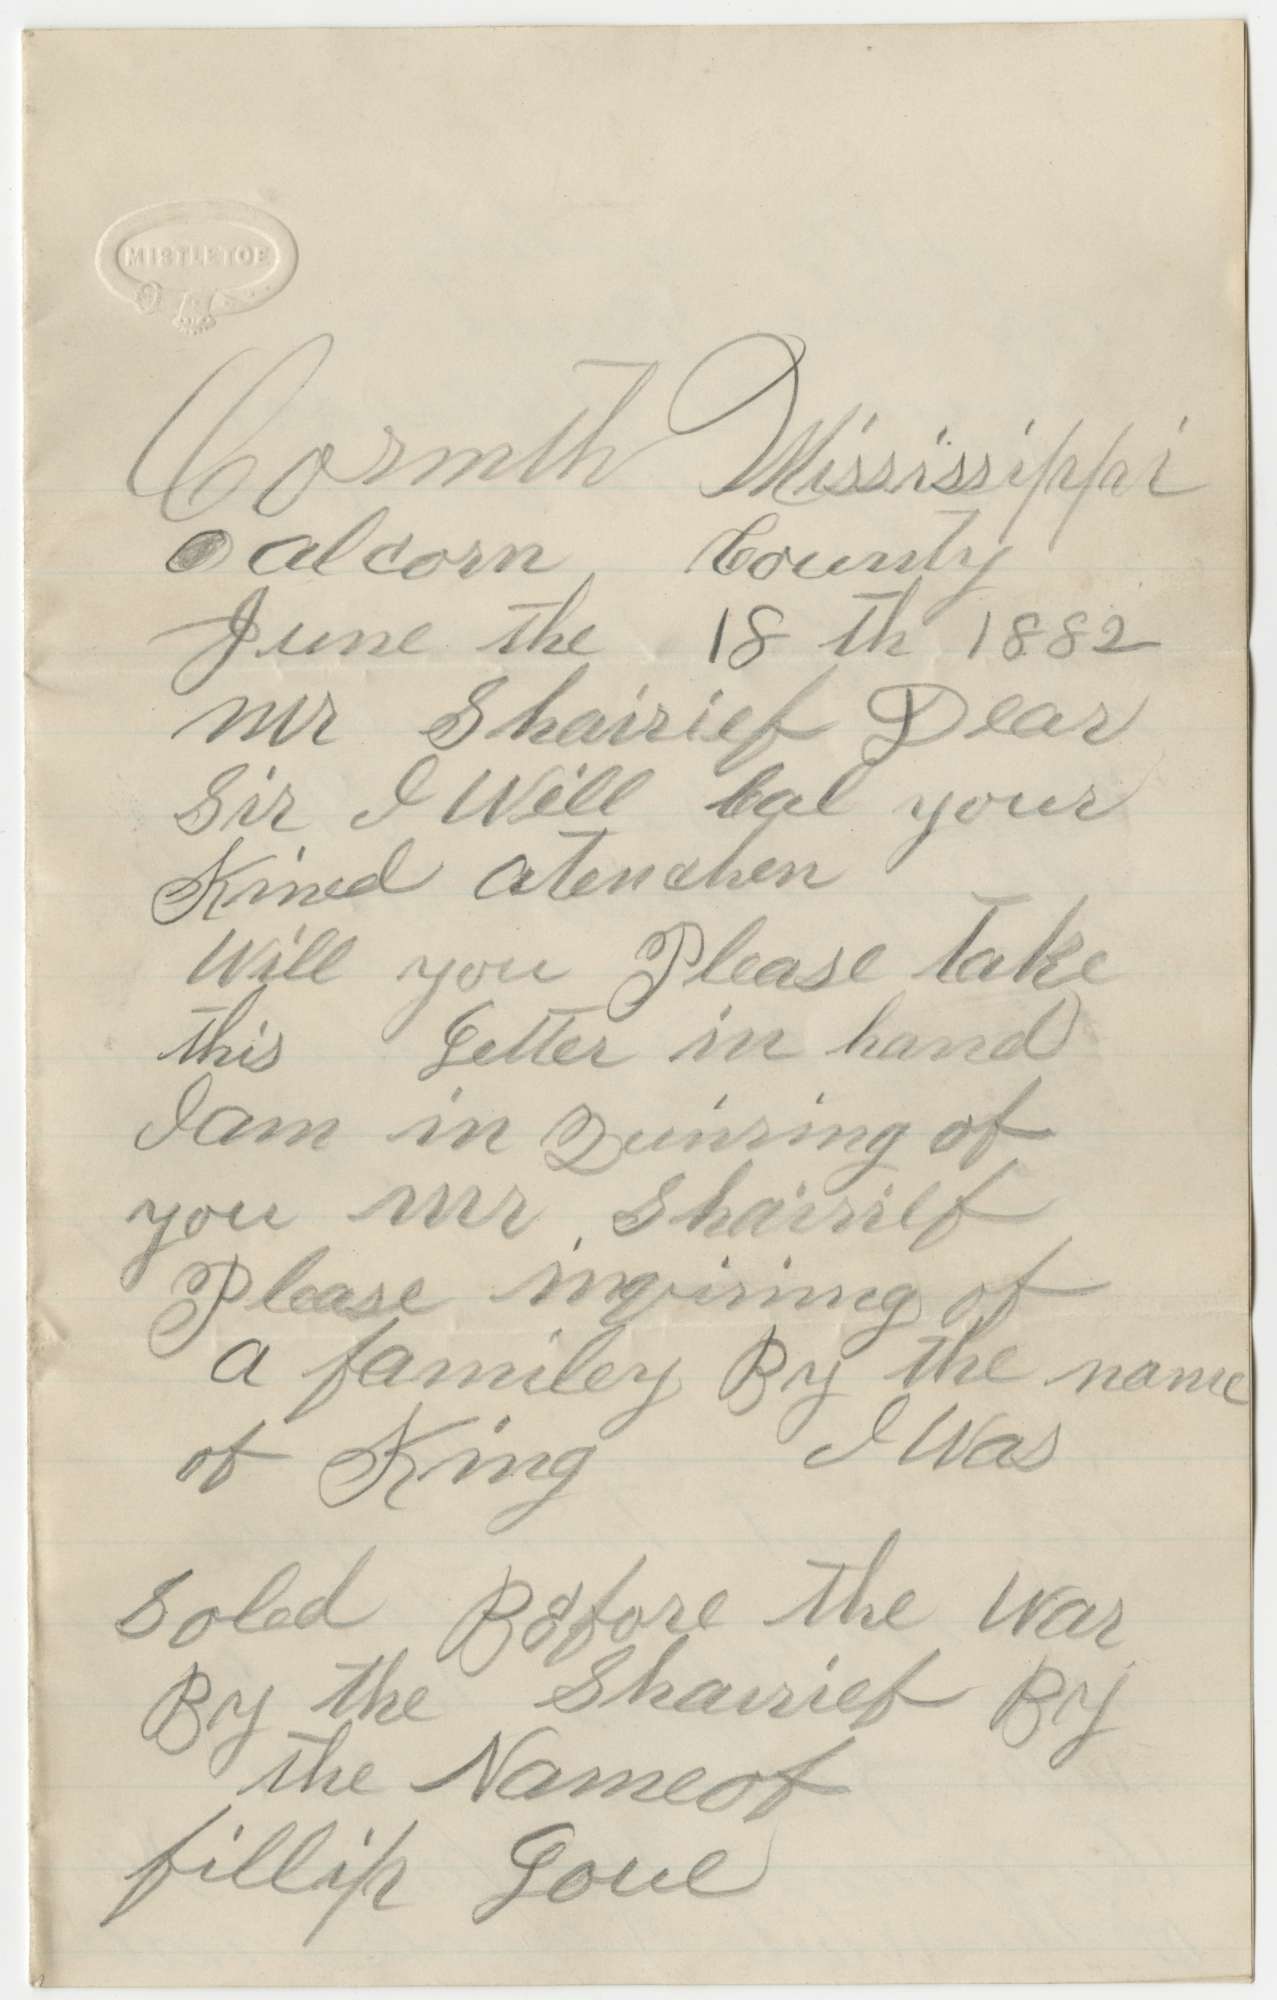 MISTLETOE
Corinth Mississippi
alcorn County
June the 18 th 1882
Mr Shairief Dear
Sir I Will Cal your
Kined atenchen
Will you Please take
this Letter in hand
I am in Quiring of
you Mr Shairief
Please inqiring of
a familey By the name
of King I Was
Soled Before the War
By the Shairief By
the Name of
fillip